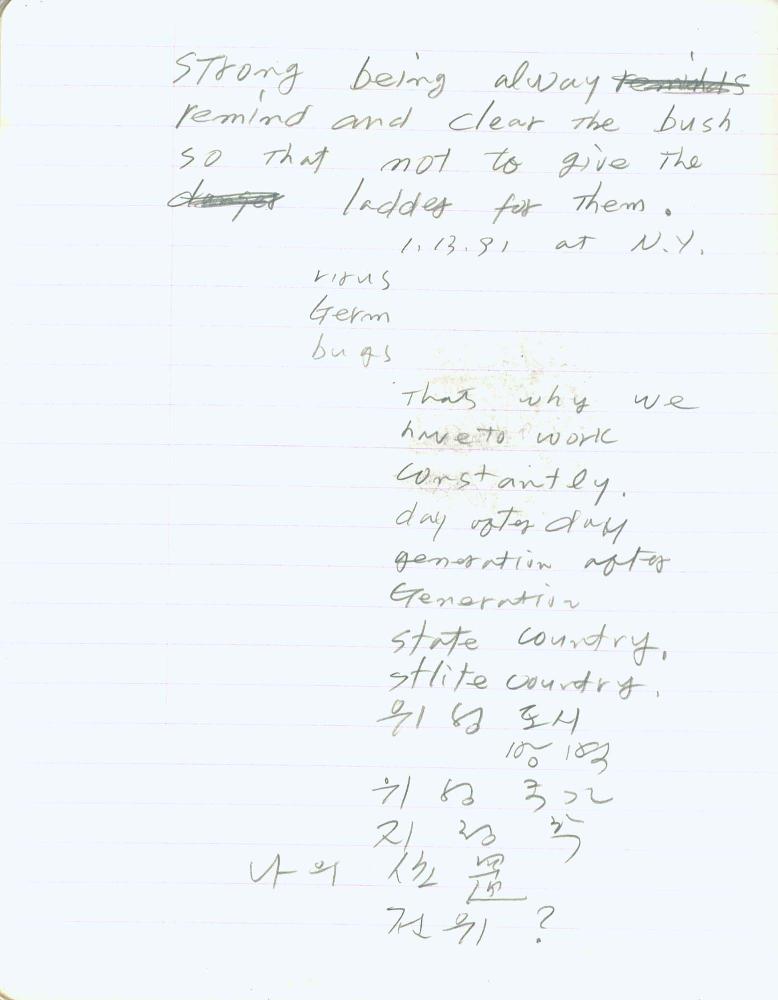 Strong being alway
remind and clear the bush
so that not to give the
ladder for them.
1.13.91 at N.Y.
virus
Germ
bugs
Thats why we
have to work
constantly.
day after day
generation after
Generation
state country.
stlite country.
위성 도시
위성 국가
지정학
나의
전위?